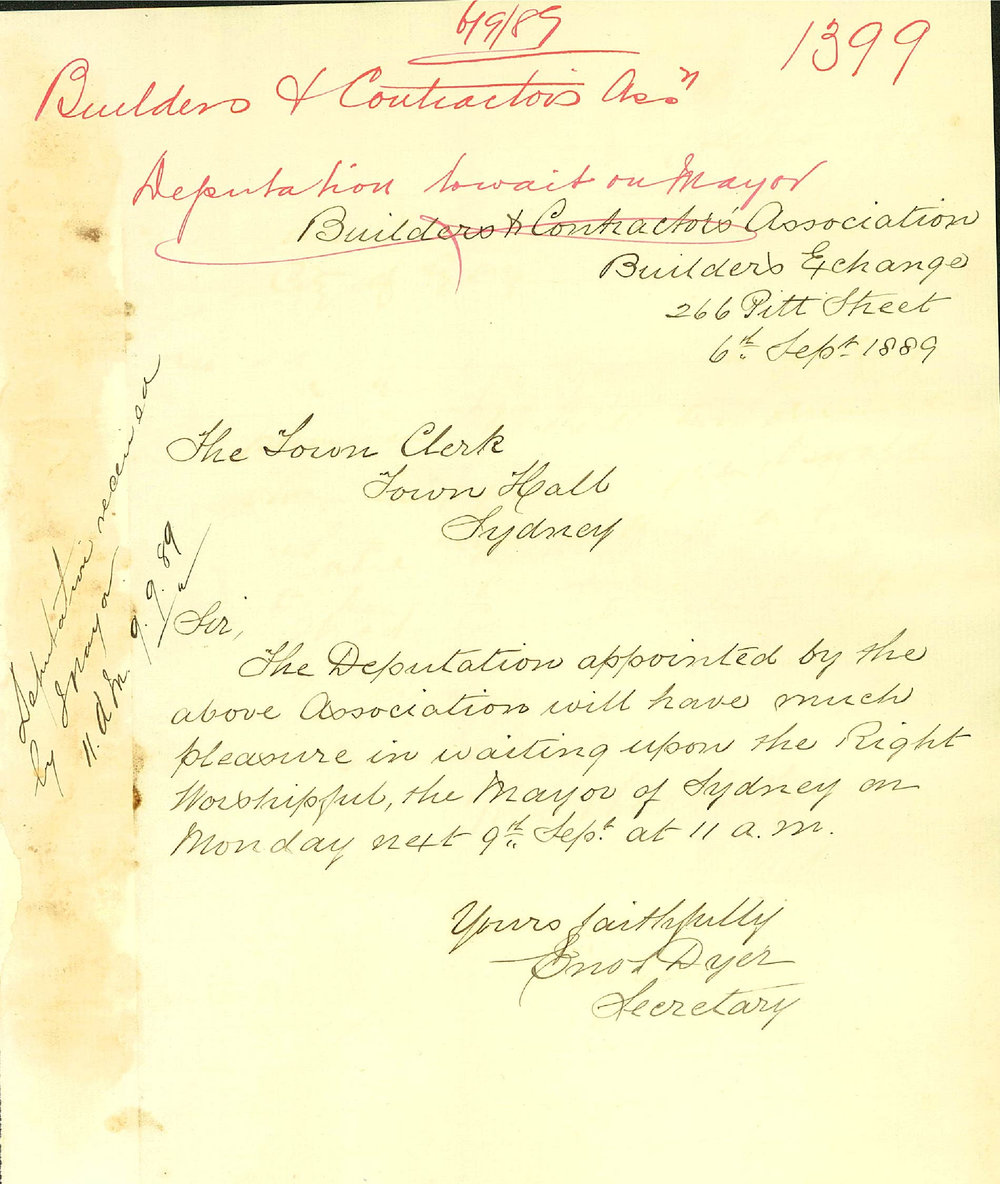 6/9/89
1399
Builders & Contractors Assn
Deputation to wait on Mayor
Builders & Contractors' Association
Builders Exchange
266 Pitt Street
6th Sept 1889
The Town Clerk
Town Hall
Sydney
Sir,
The Deputation appointed by the
above Association will have much
pleasure in waiting upon the Right
Worshipful, the Mayor of Sydney on
Monday next 9th Sept at 11 a.m.
Yours faithfully
Enos Dyer
Secretary
Deputation received
by Mayor
9.9.89